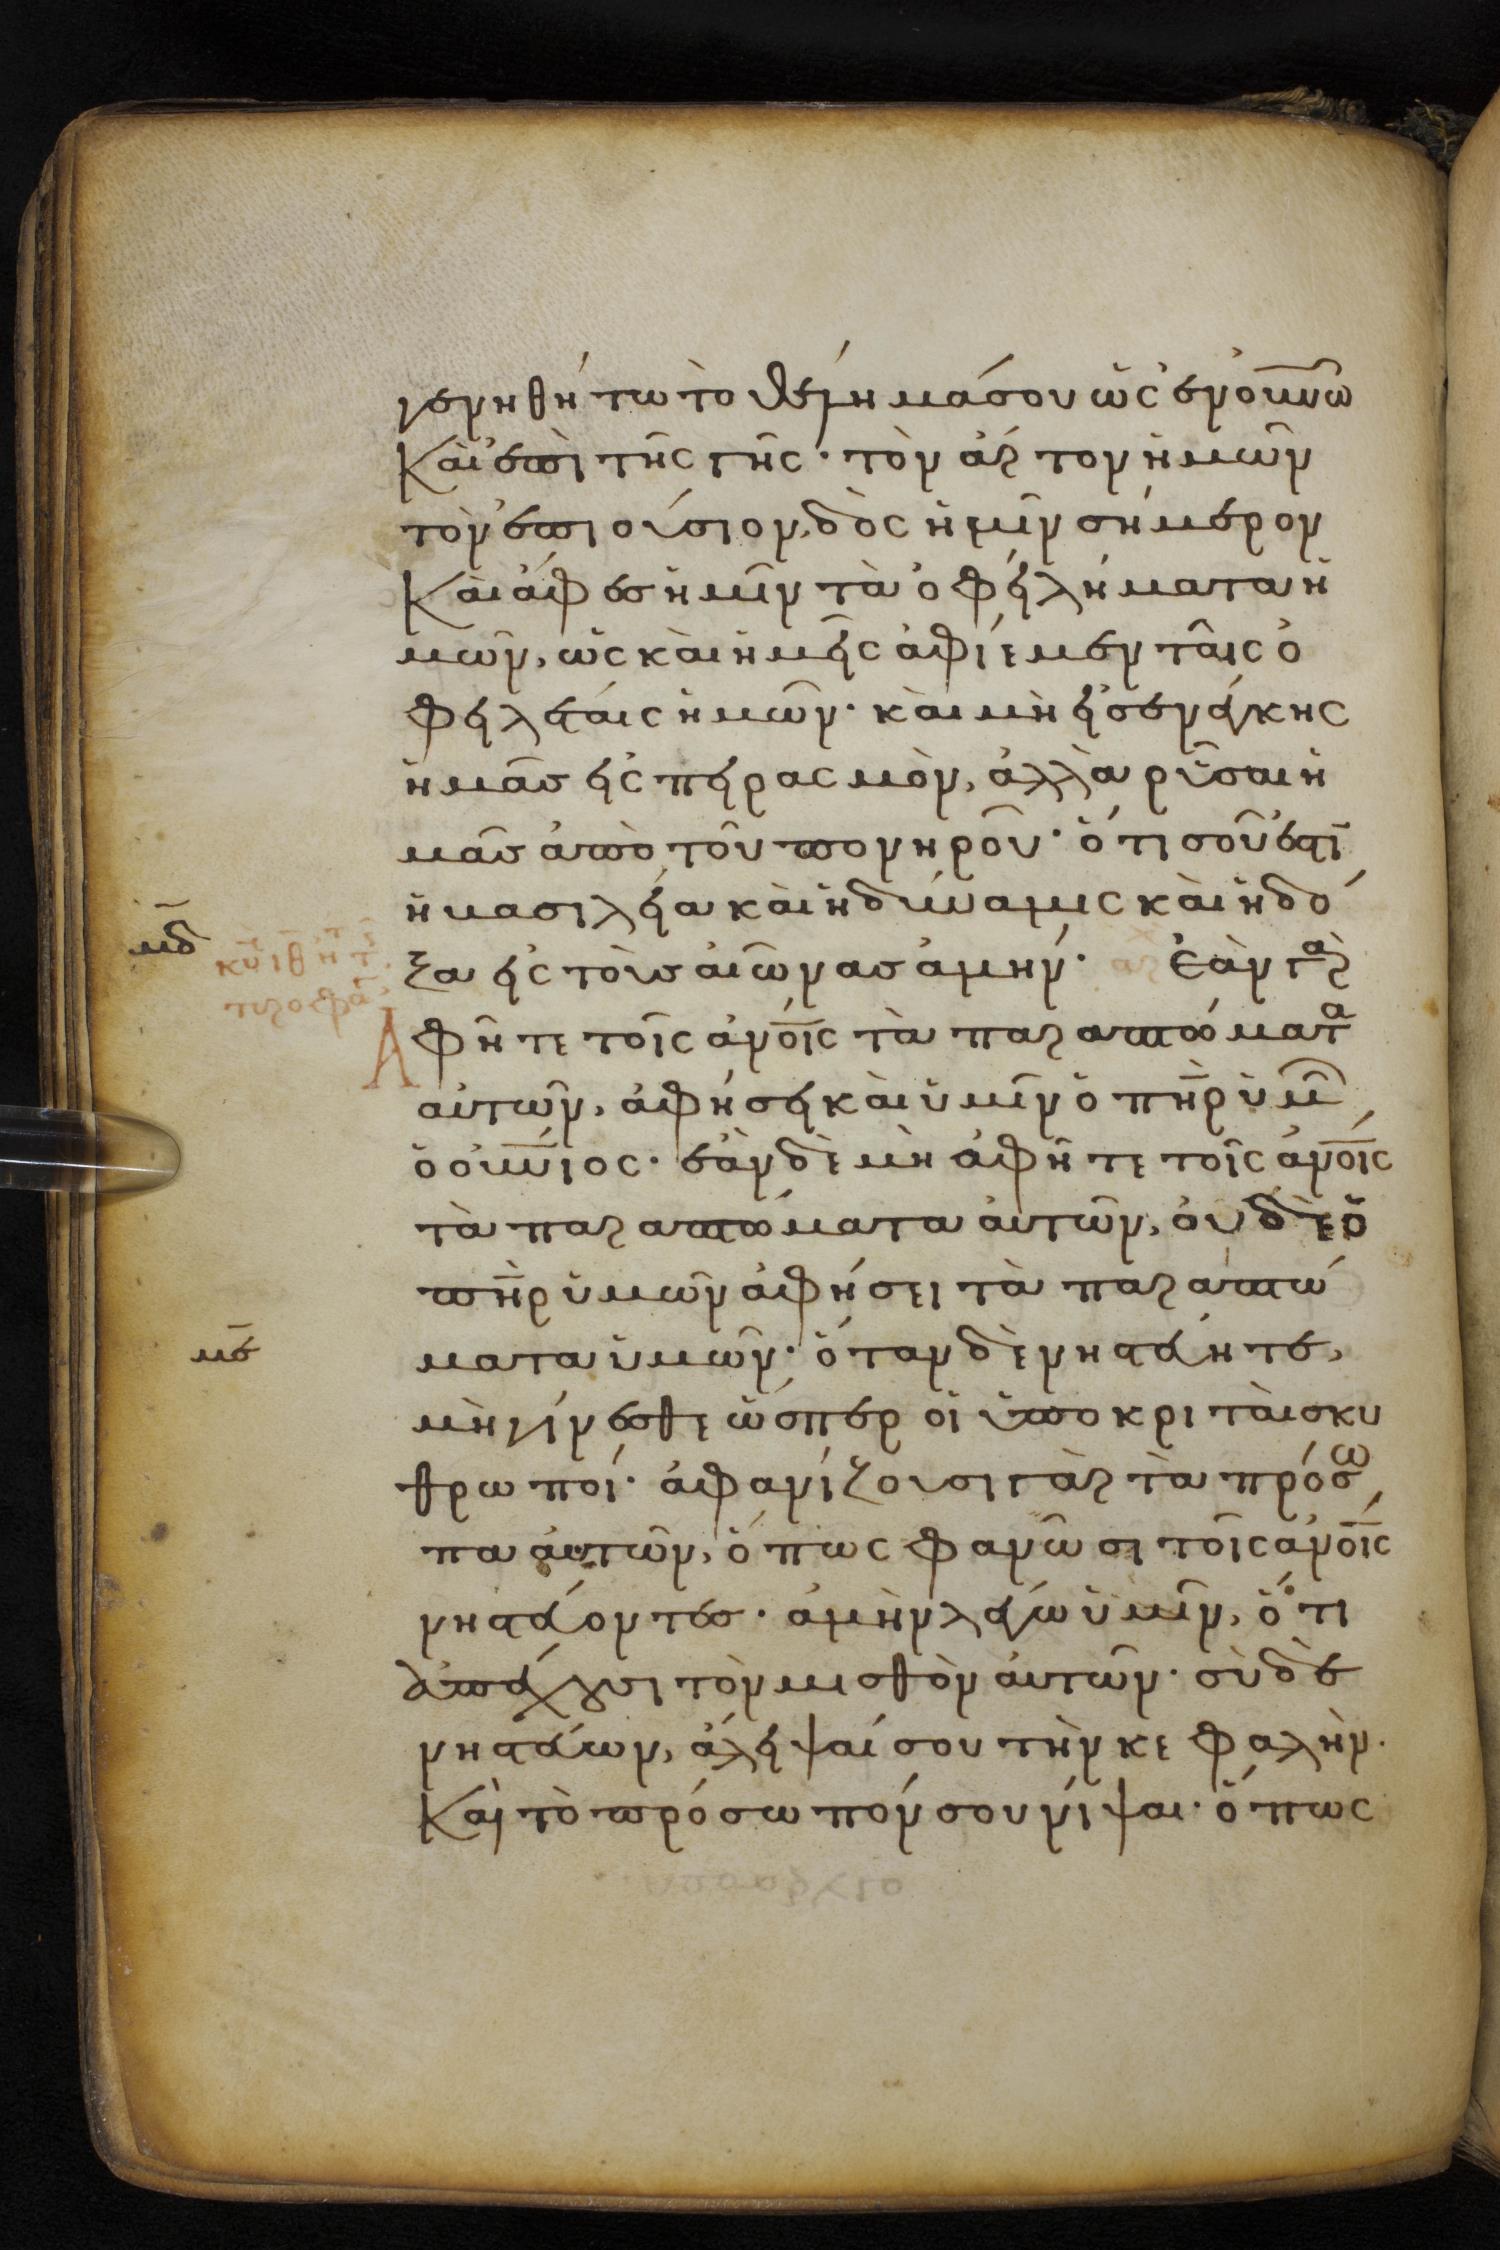 γενηθήτω τὸ θέλημά σου ὡς ἐν οὐνῶ
Καὶ ἐπὶ τῆς γῆς· τὸν ἄρτον ἡμῶν
τὸν ἐπιούσιον, δὸς ἡμῖν σήμερον
Καὶ ἄφες ἡμῖν τὰ ὀφειλήματα ἡ
μῶν, ὡς καὶ ἡμεῖς ἀφίεμεν τοῖς ὀ
φειλέταις ἡμῶν· καὶ μὴ εἰσενέγκης
ἡμᾶς εἰς πειρασμὸν, ἀλλὰ ῥῦσαι ἡ
μᾶς ἀπὸ τοῦ πονηροῦ· ὅτι σοῦ ἐστὶ
μδ ἡ βασιλεία καὶ ἡ δύναμις καὶ ἡ δό
ξα εἰς τοὺς αἰῶνας ἀμήν· Ἐὰν γὰρ
Ἀφῆτε τοῖς ἀνοις τὰ παραπτώματα
αὐτῶν, ἀφήσει καὶ ὑμῖν ὁ πηρ ὑμῶ
ὁ οὐνιος· ἐὰν δὲ μὴ ἀφῆτε τοῖς ἀνοις
τὰ παραπτώματα αὐτῶν, οὐδὲ ὁ
πηρ ὑμῶν ἀφήσει τὰ παραπτώ
με ματα ὑμῶν· ὅταν δὲ νηστεύητε,
μὴ γίνεσθε ὥσπερ οἱ ὑποκριταὶ σκυ
θρωποί· ἀφανίζουσι γὰρ τὰ πρόσω
πα αὐτῶν, ὅπως φανῶσι τοῖς ἀνοις
νηστεύοντες· ἀμὴν λέγω ὑμῖν, ὅτι
ἀπέχουσι τὸν μισθὸν αὐτῶν· σὺ δὲ
νηστεύων, ἄλειψαί σου τὴν κεφαλὴν·
Καὶ τὸ πρόσωπόν σου νίψαι· ὅπως